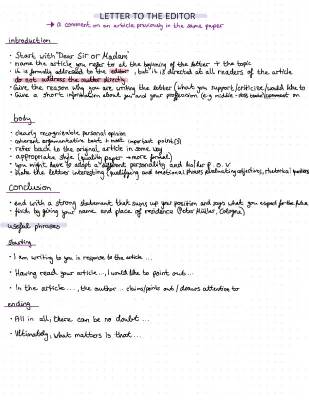 LETTER TO THE EDITOR
→ a comment on an article previously in the same paper
introduction
• Start with "Dear Sir or Madam"
• name the article you refer to at the beginning of the letter + the topic
• it is formally addressed to the editor, but it is directed at all readers of the article
do not address the author directly
• Give the reason why you are writing the letter (what you support/criticise/would like to
• Give a short information about you and your profession (e.g. middle-
body
• clearly recognisable personal opinion
• coherent argumentative text + most important point(s)
• refer back to the original article in some way
• appropriate style (quality paper → more formal)
• you might have to adopt a different personality and his/her p.o.v
• Make the letter interesting (qualifying and emotional phrases, evaluating adjectives, rhetorical
conclusion
• end with a strong statement that sums up your position and says what you expect for the future
• finish by giving your name and place of residence (Peter Müller, Cologne)
useful phrases
starting
• I am writing to you in response to the article ...
• Having read your article..., I would like to point out...
• In the article...., the author... claims/points out / draws attention to
ending
• All in all, there can be no doubt...
• Ultimately, what matters is that...